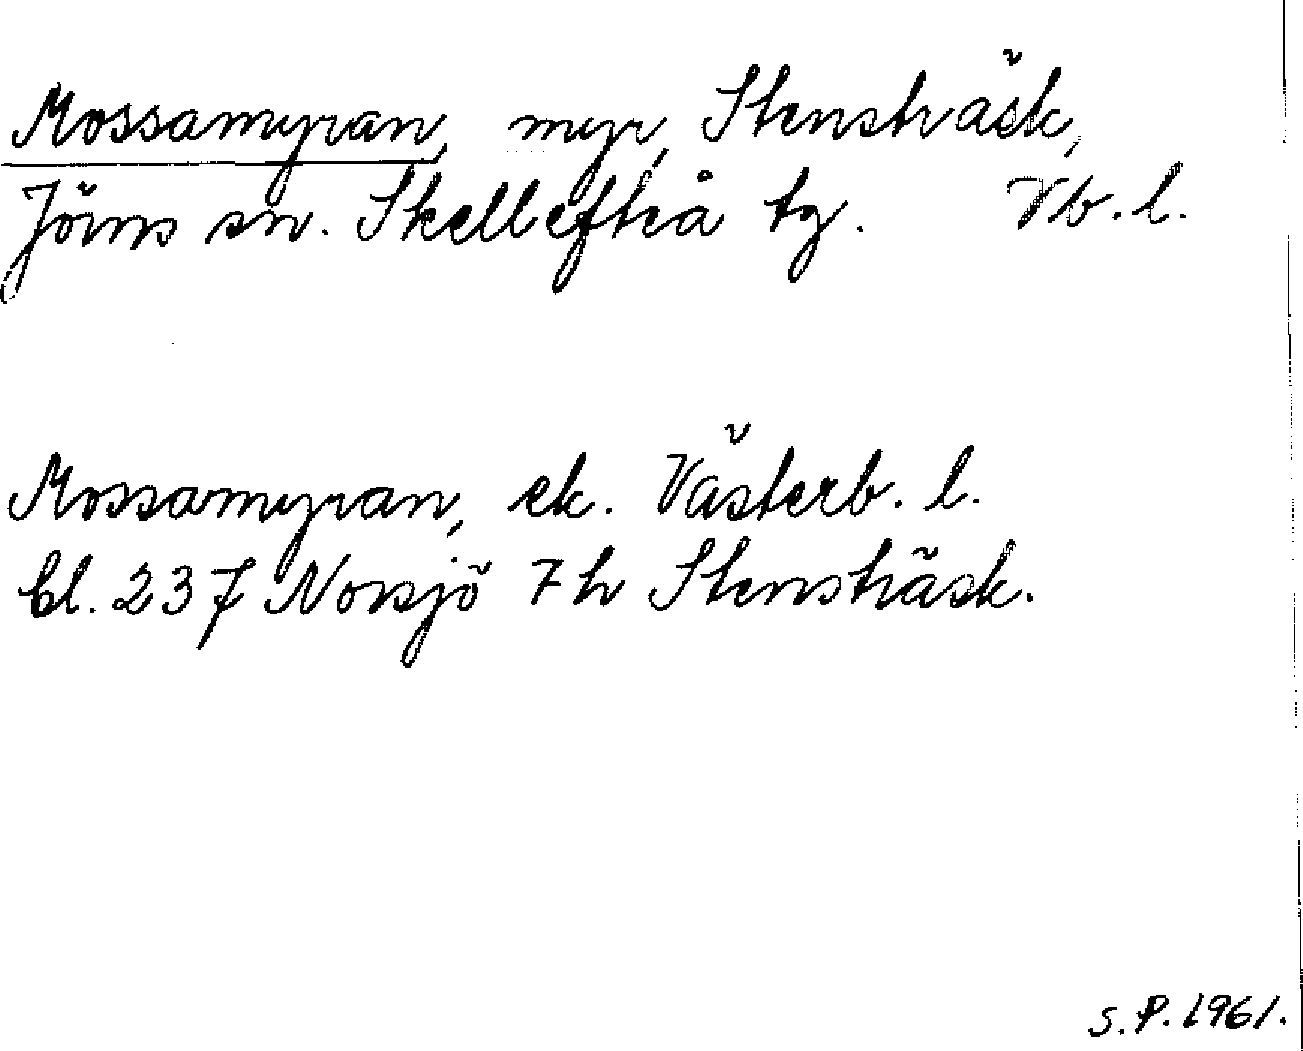 Mossamyran, myr, Stensträsk,
Jörns sn. Skellefteå tg. Vb. l.
Mossamyran, ek. Västerb. l.
bl. 237 Norsjö 7 h Stensträsk.
S.P. 1961.